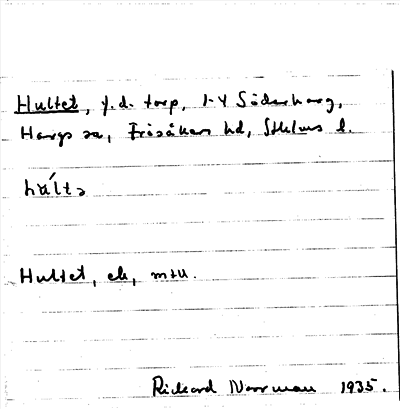 Hultet, f.d. torp, 1-4 Söderharg,
Hargs sn, Frösåkers hd, Sthlms l.
Hultet, ek, mtu.
Rickard Norrman 1935.